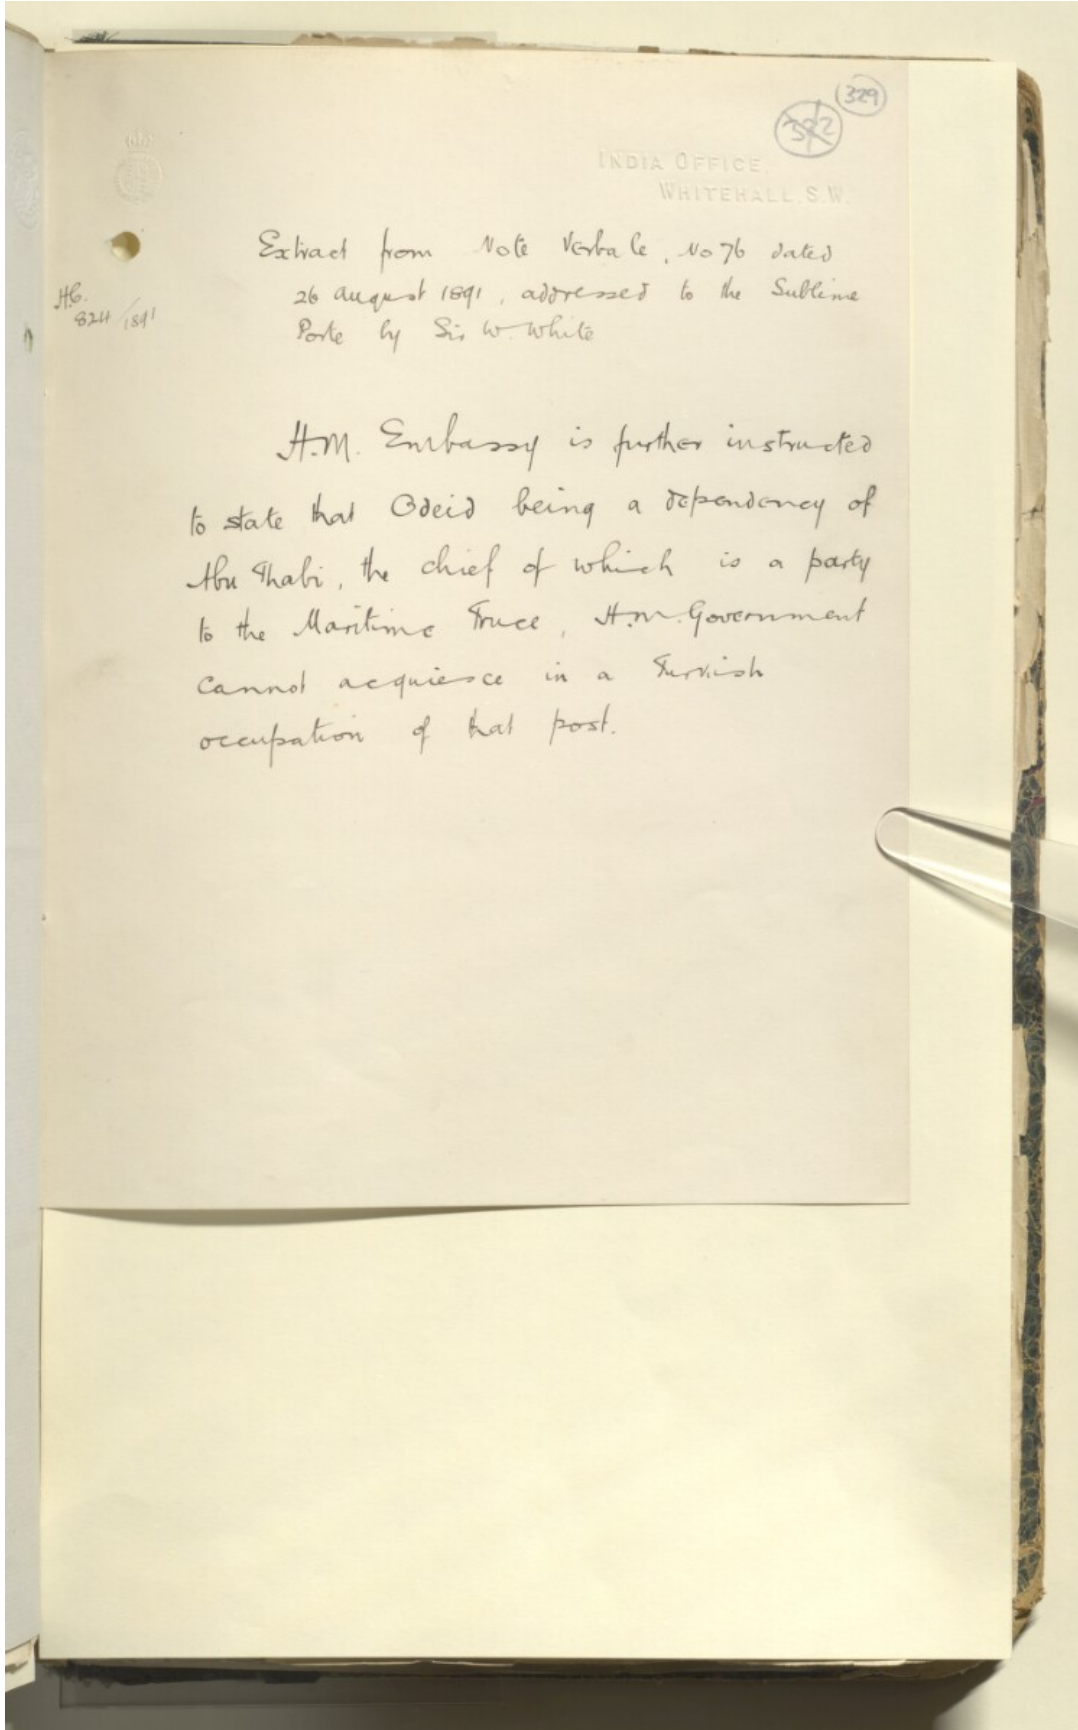 329
322
INDIA OFFICE,
WHITEHALL, S.W.
Extract from Note Verbale, No 76 dated
26 august 1891, addressed to the Sublime
Porte by Sir W. White
H.C.
824/1891
H.M. Embassy is further instructed
to state that Odeid being a dependency of
Abu Thabi, the chief of which is a party
to the Maritime Truce, H.M. Government
cannot acquiesce in a Turkish
occupation of that post.